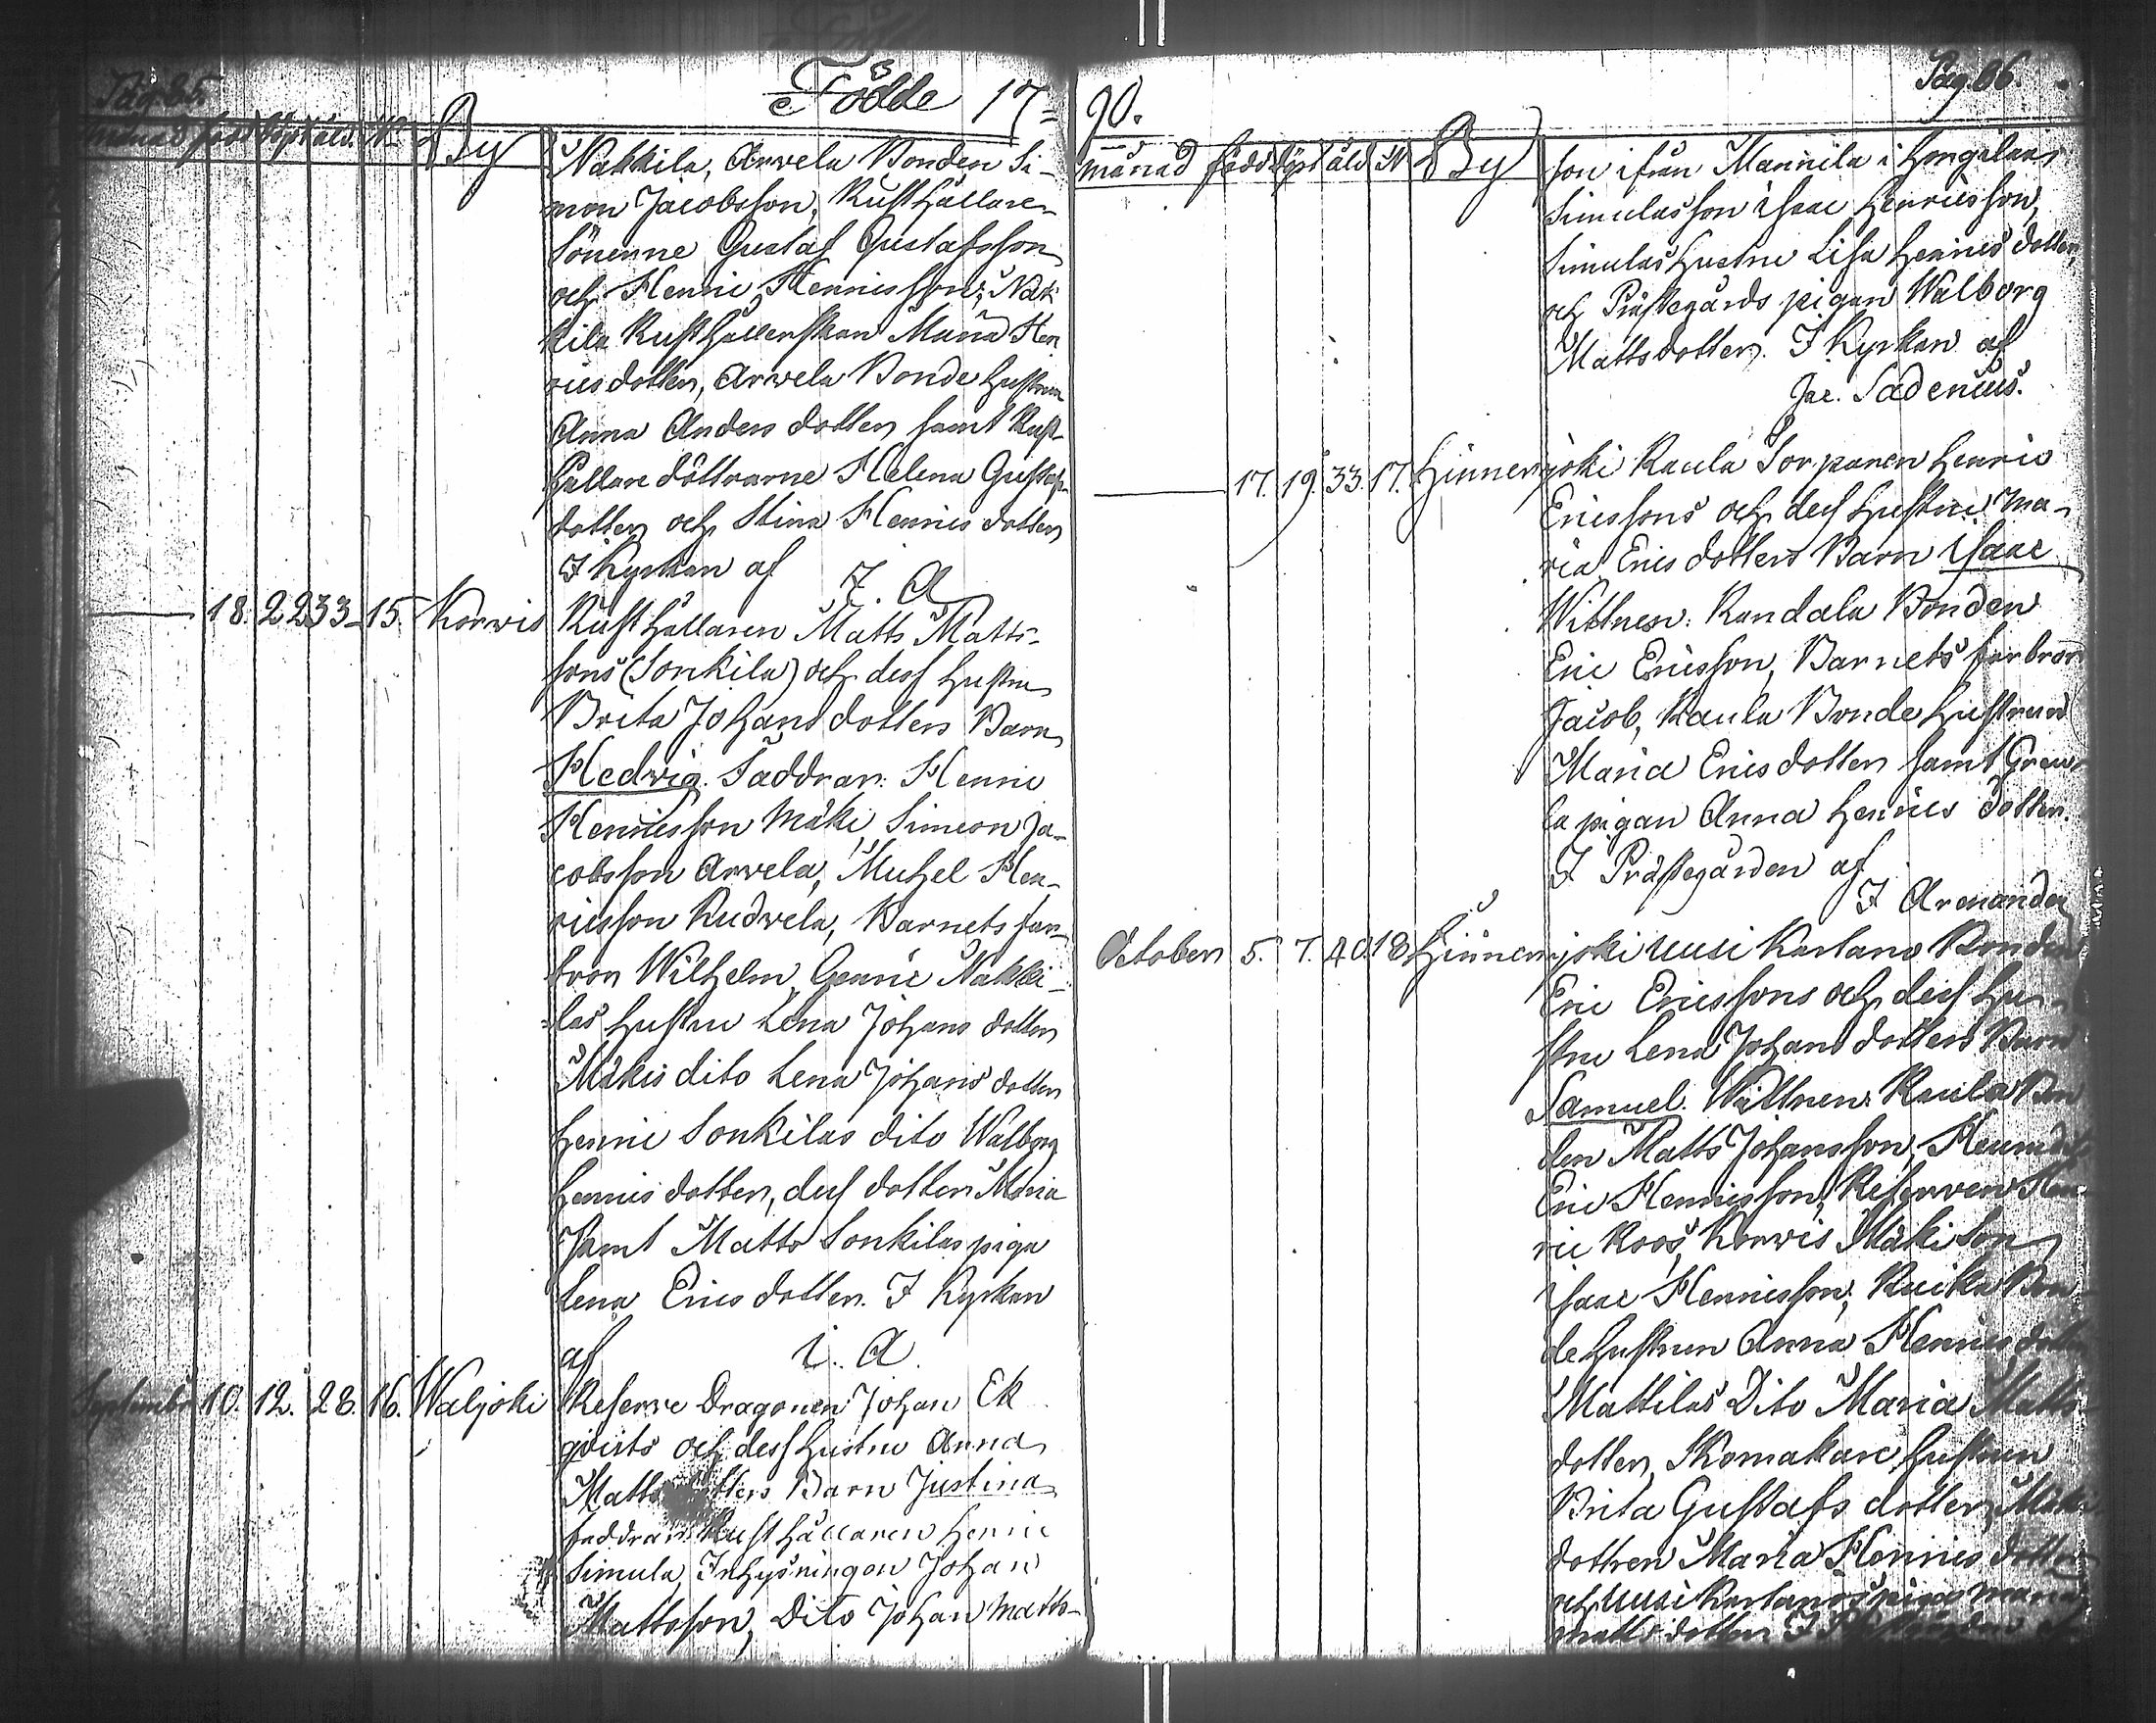 Pag. 65.
Födde 17=
Månad född döpt åld. No By
Nakkila, Arvela Bonden Si-
mon Jacobsson, Rusthållare-
sönerne Gustaf Gustafsson
och Henric Henricsson, Nak
kila Rusthållerskan Maria Hen
rics dotter, Arvela Bonde hustrun
Anna Anders dotter samt Rust-
hållare döttrarne Helena Gustafs
dotter och Stina Henrics dotter
I Kyrkan af J. A
18. 22 33 15. Korwis Rusthållaren Matts Matts-
sons (Sonkila) och dess hustru
Brita Johans dotters Barn
Hedwig. Faddrar: Henric
Henricsson Mäki, Simeon Ja-
cobsson Arvela, Michel Hen-
ricsson Rudwela, Barnets far-
bror Wilhelm, Henric Nakki-
las hustru Lena Johans dotter
Mäkis dito Lena Johans dotter
Henric Sonkilas dito Walborg
Henrics dotter, dess dotter Maria
samt Matts Sonkilas piga
Lena Erics dotter. I Kyrkan
af i. A.
September 10. 12. 28. 16. Waljoki Reserve Dragonen Johan Ek
qvists och dess hustru Anna
Matts dotters Barn Justina
faddrar Rusthållaren Henric
Simula, Inhysningen Johan
Mattsson, Dito Johan Matts-
90.
Pag. 66.
månad född döpt åld N By
son ifrån Mannila i Hongilaas
Simulas son Isaac Henricsson,
Simulas hustru Lisa Henrics dotter,
och Prästegårds pigan Walborg
Mattsdotter. I Kyrkan af
Jac. Sadenius.
17. 19. 33. 17. Hinnerjoki Kaula Sorpanen Henric
Ericssons och dess hustru Ma-
ria Erics dotters Barn Isaac
Wittnen: Randala Bonden
Eric Ericsson, Barnets farbror
Jacob, Kaula Bonde hustrun
Maria Erics dotter samt Grew
la pigan Anna Henrics dotter.
I Prästegården af
J Armander
October 5. 7. 40. 18 Hinnerjoki Uusi Kartano Bonden
Eric Ericssons och dess hu-
stru Lena Johans dotters Barn
Samuel. Wittnen: Kaula Bon
den Matts Johansson,
Eric Henricsson, Reserven Hen
ric Roos, Korwis Mäki Son
Isaac Henricsson, Ruika Bon
de hustrun Anna Henrics dotter
Mattilas Dito Maria Matts-
dotter, Skomakare hustrun
Brita Gustafs dotter, Mäki
dottren Maria Henrics dotter
och Uusi Kartanos piga Maria
Matts dotter I